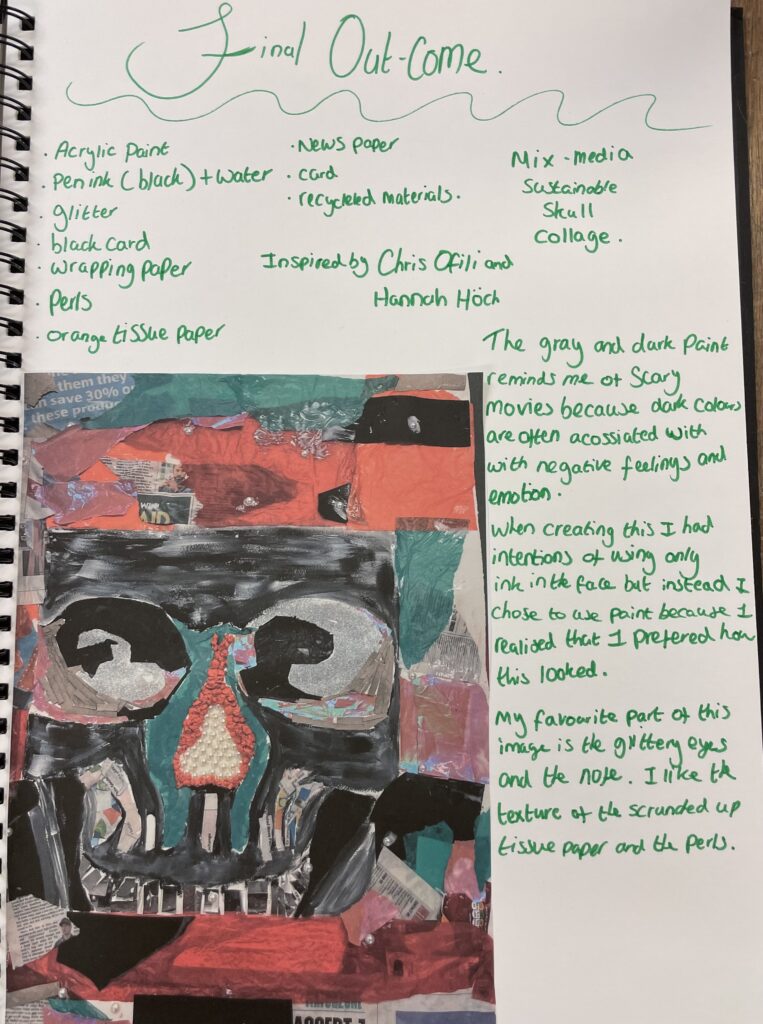 Final Out-come.
· Acrylic Paint
· Pen ink (black) + water
· glitter
· black card
· wrapping paper
· Perls
· orange tissue paper
· News paper
· card
· recycleled materials.
Mix-media
Sustainable
Skull
Collage.
Inspired by Chris Ofili and
Hannah Höch
The gray and dark Paint
reminds me of Scary
movies because dark colours
are often acossiated with
with negative feelings and
emotion.
When creating this I had
intentions of using only
ink in the face but instead I
chose to use paint because I
realised that I preferred how
this looked.
My favourite part of this
image is the glittery eyes
and the nose. I like the
texture of the scrunded up
tissue paper and the perls.
them they
can save 30% o
these produc
ACCEPT 1